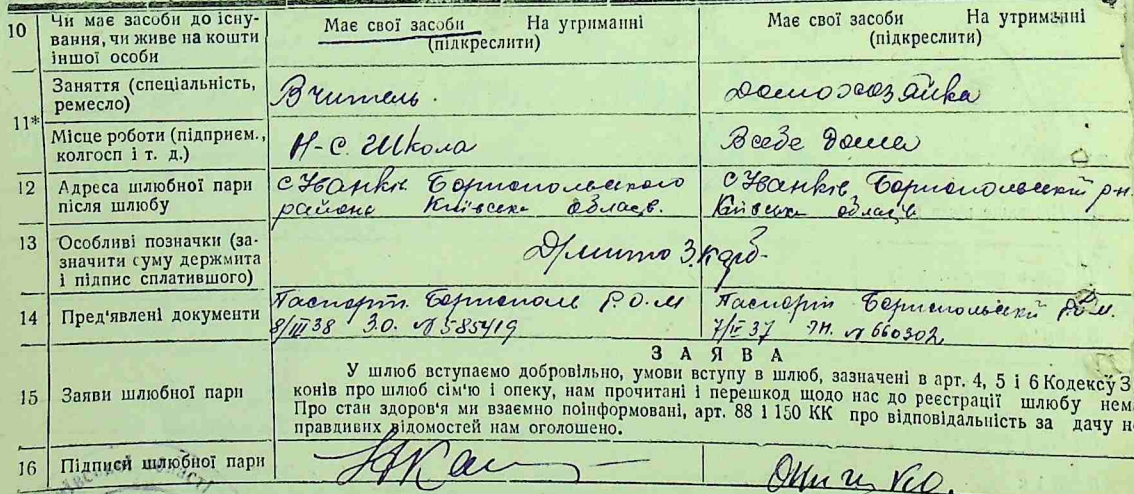 10 Чи має засоби до існу-
вання, чи живе на кошти
іншої особи
Має свої засоби На утриманні
(підкреслити)
Має свої засоби На утриманні
(підкреслити)
11*
Заняття (спеціальність,
ремесло)
Вчитель.
домохозяйка
Місце роботи (підприєм.,
колгосп і т. д.)
Н-С. Школа
В себе дома
12 Адреса шлюбної пари
після шлюбу
с Іванків Бориспольского
района Київська область.
с Іванків Бориспольський рн.
Київська область
13 Особливі позначки (за-
значити суму держмита
і підпис сплатившого)
Д/мито 3 карб.
14 Пред'явлені документи
Паспорт. Бориспольск Р.О.М
8/III 38 З.О. № 585419
Паспорт Бориспольский Р.О.М.
7/IV 37 № 660302
15 Заяви шлюбної пари
ЗАЯВА
У шлюб вступаємо добровільно, умови вступу в шлюб, зазначені в арт. 4, 5 і 6 Кодексу З
конів про шлюб сім'ю і опеку, нам прочитані і перешкод щодо нас до реєстрації шлюбу нем
Про стан здоров'я ми взаємно поінформовані, арт. 88 і 150 КК про відповідальність за дачу не
правдивих відомостей нам оголошено.
16 Підписи шлюбної пари